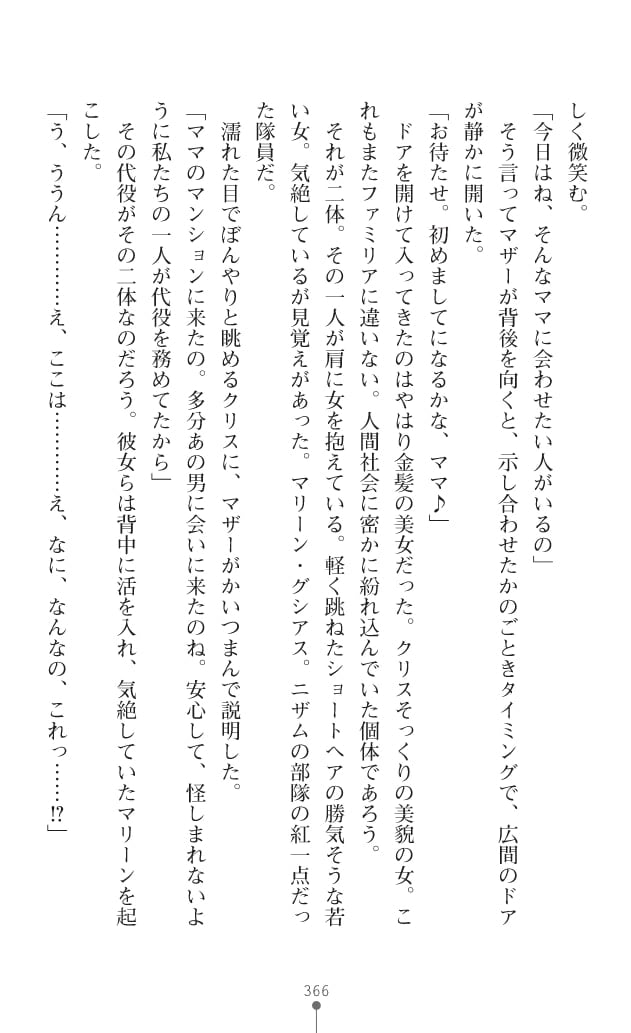 しく微笑む。
「今日はね、そんなママに会わせたい人がいるの」
そう言ってマザーが背後を向くと、示し合わせたかのごときタイミングで、広間のドア
が静かに開いた。
「お待たせ。初めましてになるかな、ママ♪」
ドアを開けて入ってきたのはやはり金髪の美女だった。クリスそっくりの美貌の女。こ
れもまたファミリアに違いない。人間社会に密かに紛れ込んでいた個体であろう。
それが二体。その一人が肩に女を抱えている。軽く跳ねたショートヘアの勝気そうな若
い女。気絶しているが見覚えがあった。マリーン・グシアス。ニザムの部隊の紅一点だっ
た隊員だ。
濡れた目でぼんやりと眺めるクリスに、マザーがかいつまんで説明した。
「ママのマンションに来たの。多分あの男に会いに来たのね。安心して、怪しまれないよ
うに私たちの一人が代役を務めてたから」
その代役がその二体なのだろう。彼女らは背中に活を入れ、気絶していたマリーンを起
こした。
「う、ううん…………え、ここは…………え、なに、なんなの、これっ……!?」
366